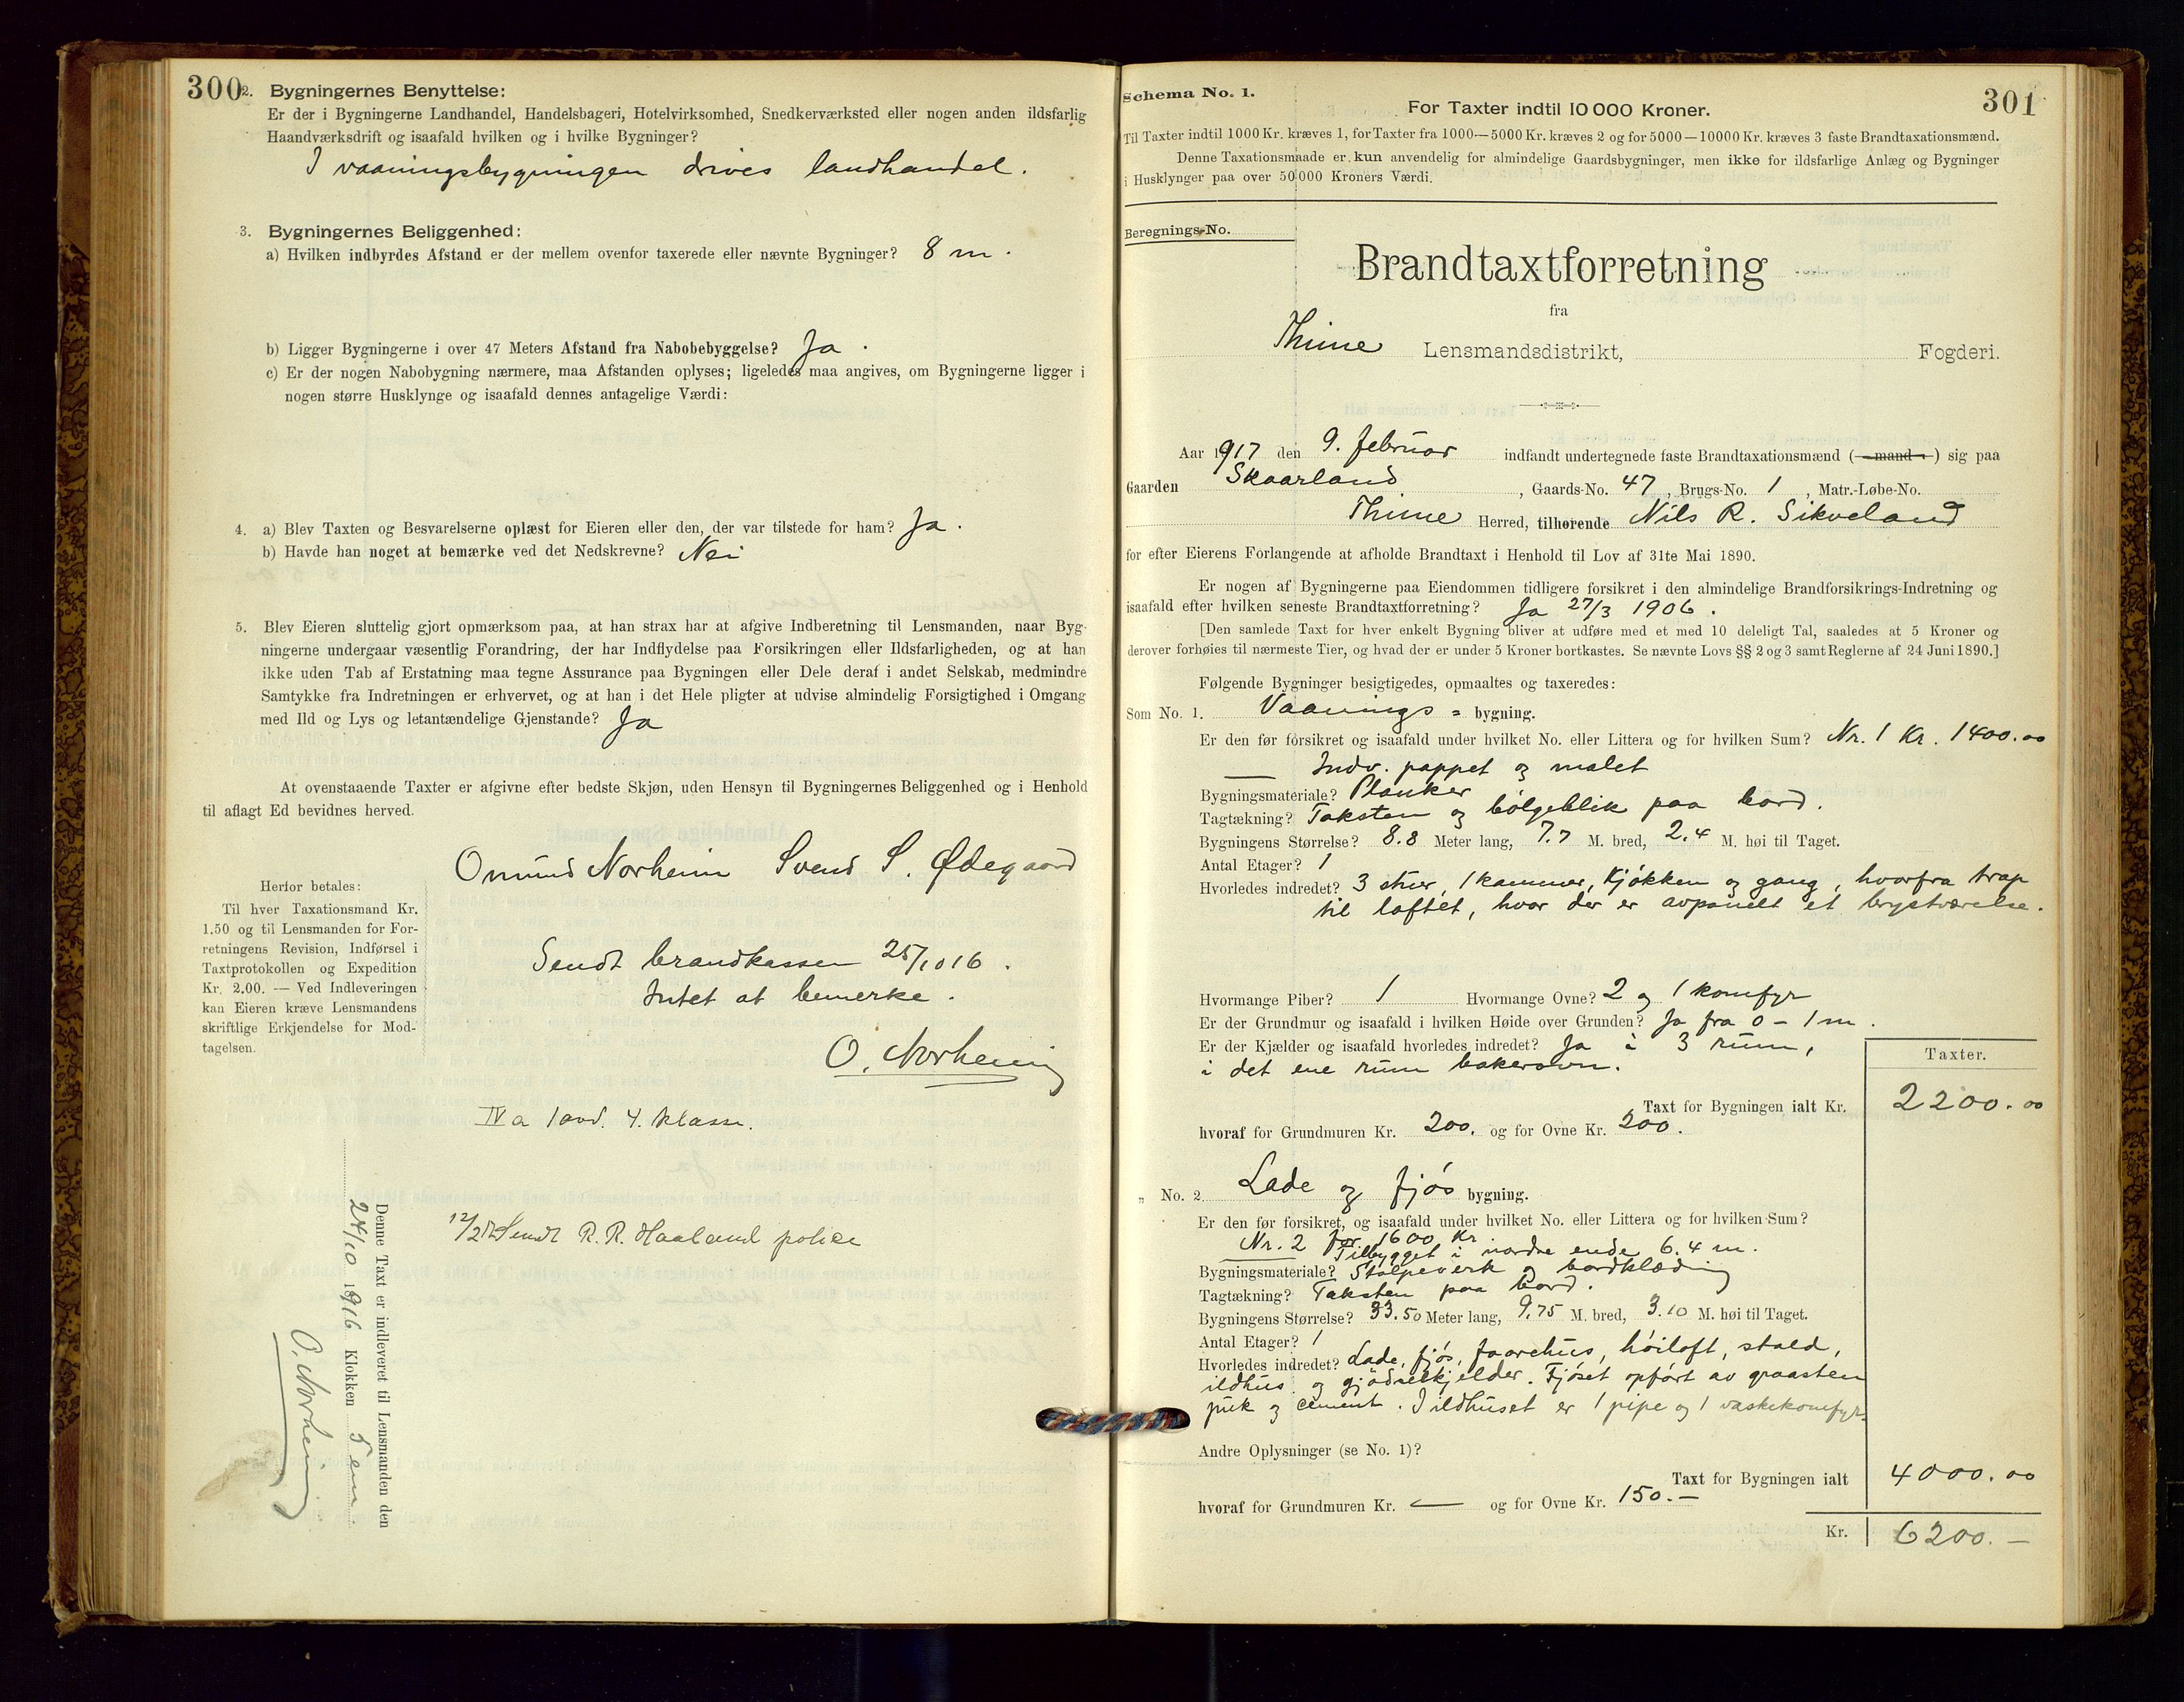 300
2. Bygningernes Benyttelse:
Er der i Bygningerne Landhandel, Handelsbageri, Hotelvirksomhed, Snedkerværksted eller nogen anden ildsfarlig
Haandværksdrift og isaafald hvilken og i hvilke Bygninger?
I vaaningsbygningen drives landhandel.
3. Bygningernes Beliggenhed:
a) Hvilken indbyrdes Afstand er der mellem ovenfor taxerede eller nævnte Bygninger? 8 m.
b) Ligger Bygningerne i over 47 Meters Afstand fra Nabobebyggelse? Ja.
c) Er der nogen Nabobygning nærmere, maa Afstanden oplyses; ligeledes maa angives, om Bygningerne ligger i
nogen større Husklynge og isaafald dennes antagelige Værdi:
4. a) Blev Taxten og Besvarelserne oplæst for Eieren eller den, der var tilstede for ham? Ja.
b) Havde han noget at bemærke ved det Nedskrevne? Nei
5. Blev Eieren sluttelig gjort opmærksom paa, at han strax har at afgive Indberetning til Lensmanden, naar Byg-
ningerne undergaar væsentlig Forandring, der har Indflydelse paa Forsikringen eller Ildsfarligheden, og at han
ikke uden Tab af Erstatning maa tegne Assurance paa Bygningen eller Dele deraf i andet Selskab, medmindre
Samtykke fra Indretningen er erhvervet, og at han i det Hele pligter at udvise almindelig Forsigtighed i Omgang
med Ild og Lys og letantændelige Gjenstande? Ja
At ovenstaaende Taxter er afgivne efter bedste Skjøn, uden Hensyn til Bygningernes Beliggenhed og i Henhold
til aflagt Ed bevidnes herved.
Omund Norheim Svend S. Ødegaard
Herfor betales:
Til hver Taxationsmand Kr.
1.50 og til Lensmanden for For-
retningens Revision, Indførsel i
Taxtprotokollen og Expedition
Kr. 2.00. — Ved Indleveringen
kan Eieren kræve Lensmandens
skriftlige Erkjendelse for Mod-
tagelsen.
Sendt brandkassen 25/10 16.
Intet at bemerke.
O. Norheim
IV a 1 avd. 4. klasse.
Sendt R. R. Haaland police
Denne Taxt er indleveret til Lensmanden den
24/10 1916 Klokken 5 em
O. Norheim
Schema No. 1.
301
For Taxter indtil 10 000 Kroner.
Til Taxter indtil 1000 Kr. kræves 1, for Taxter fra 1000—5000 Kr. kræves 2 og for 5000—10000 Kr. kræves 3 faste Brandtaxationsmænd.
Denne Taxationsmaade er kun anvendelig for almindelige Gaardsbygninger, men ikke for ildsfarlige Anlæg og Bygninger
i Husklynger paa over 50 000 Kroners Værdi.
Beregnings-No.
Brandtaxtforretning
fra
Thime Lensmandsdistrikt, Fogderi.
Aar 1917 den 9. februar indfandt undertegnede faste Brandtaxationsmænd (mand) sig paa
Gaarden Skaarland, Gaards-No. 47, Brugs-No. 1, Matr.-Løbe-No.
Thime Herred, tilhørende Nils R. Sikveland
for efter Eierens Forlangende at afholde Brandtaxt i Henhold til Lov af 31te Mai 1890.
Er nogen af Bygningerne paa Eiendommen tidligere forsikret i den almindelige Brandforsikrings-Indretning og
isaafald efter hvilken seneste Brandtaxtforretning? Ja 27/3 1906.
[Den samlede Taxt for hver enkelt Bygning bliver at udføre med et med 10 deleligt Tal, saaledes at 5 Kroner og
derover forhøies til nærmeste Tier, og hvad der er under 5 Kroner bortkastes. Se nævnte Lovs §§ 2 og 3 samt Reglerne af 24 Juni 1890.]
Følgende Bygninger besigtigedes, opmaaltes og taxeredes:
Som No. 1. Vaanings- bygning.
Er den før forsikret og isaafald under hvilket No. eller Littera og for hvilken Sum? Nr. 1 Kr. 1400.00
Indv. pappet og malet
Bygningsmateriale? Planker
Tagtækning? Taksten og bølgeblik paa bord.
Bygningens Størrelse? 8.8 Meter lang, 7.7 M. bred, 2.4 M. høi til Taget.
Antal Etager? 1
Hvorledes indredet? 3 stuer, 1 kammer, kjøkken og gang, hvorfra trap
til loftet, hvor der er avpanelt et brystværelse.
Hvormange Piber? 1 Hvormange Ovne? 2 og 1 komfyr
Er der Grundmur og isaafald i hvilken Høide over Grunden? Ja fra 0 - 1 m.
Er der Kjælder og isaafald hvorledes indredet? Ja i 3 rum,
i det ene rum bakerovn.
Taxter.
Taxt for Bygningen ialt Kr. 2200.00
hvoraf for Grundmuren Kr. 200. og for Ovne Kr. 200.
„ No. 2. Lade og fjøs bygning.
Er den før forsikret, og isaafald under hvilket No. eller Littera og for hvilken Sum?
Nr. 2 for 1600 Kr.
Tilbygget i nordre ende 6.4 m.
Bygningsmateriale? Stolpeverk og bordklædning
Tagtækning? Taksten paa bord.
Bygningens Størrelse? 33.50 Meter lang, 9.75 M. bred, 3.10 M. høi til Taget.
Antal Etager? 1
Hvorledes indredet? Lade, fjøs, faarehus, høiloft, stald,
ildhus og gjødselkjelder. Fjøset opført av graasten
puk og cement. I ildhuset er 1 pipe og 1 vaskekomfyr.
Andre Oplysninger (se No. 1)?
Taxt for Bygningen ialt 4000.00
hvoraf for Grundmuren Kr. — og for Ovne Kr. 150.-
Kr. 6200.-